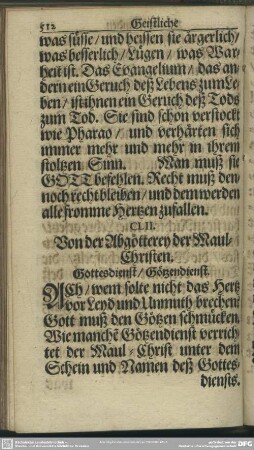 512 Geistliche
was süsse/ und heissen sie ärgerlich/
was besserlich/ Lügen/ was War-
heit ist. Das Evangelium/ das an-
dern ein Geruch deß Lebens zum Le-
ben/ ist ihnen ein Geruch deß Tods
zum Tod. Sie sind schon verstockt
wie Pharao/ und verhärten sich
immer mehr und mehr in ihrem
stoltzen Sinn. Man muß sie
GOTT befehlen. Recht muß den-
noch recht bleiben/ und dem werden
alle fromme Hertzen zufallen.
CLII.
Von der Abgötterey der Maul-
Christen.
Gottesdienst/ Götzendienst.
ACh/ wem solte nicht das Hertz
vor Leyd und Unmuth brechen!
Gott muß den Götzen schmücken.
Wie manchē Götzendienst verrich-
tet der Maul-Christ unter dem
Schein und Namen deß Gottes-
diensts.
DFG